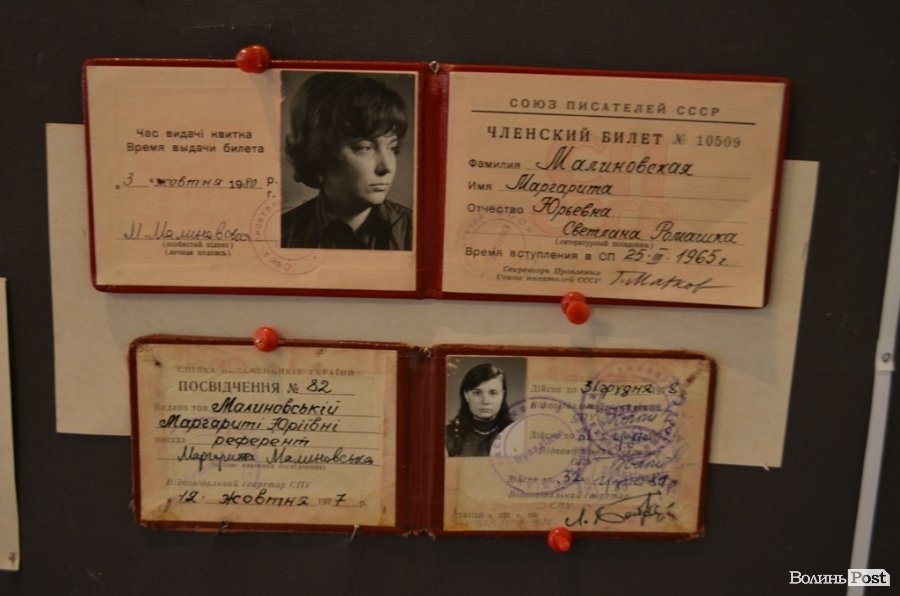 Час видачі квитка
Время выдачи билета
„3 " жовтня 1980 р.
г.
М Малиновська
(особистий підпис)
(личная подпись)
СОЮЗ ПИСАТЕЛЕЙ СССР
ЧЛЕНСКИЙ БИЛЕТ № 10509
Фамилия Малиновская
Имя Маргарита
Отчество Юрьевна
Светлана Ромашка
(литературный псевдоним)
Время вступления в СП 25-III-1965 г.
Секретарь Правления
Союза писателей СССР Г. Марков
СПІЛКА ПИСЬМЕННИКІВ УКРАЇНИ
ПОСВІДЧЕННЯ № 82
Видано тов. Малиновській
Маргариті Юріївні
посада референт
Маргарита Малиновська
Відповідальний секретар СПУ
12. жовтня 1977 р.
Дійсне до 31 грудня 197
Відповідальний секретар
СПУ
Дійсне до 31
Відповідальний
Дійсне до
Відповідальний секретар
СПУ
Волинь Post